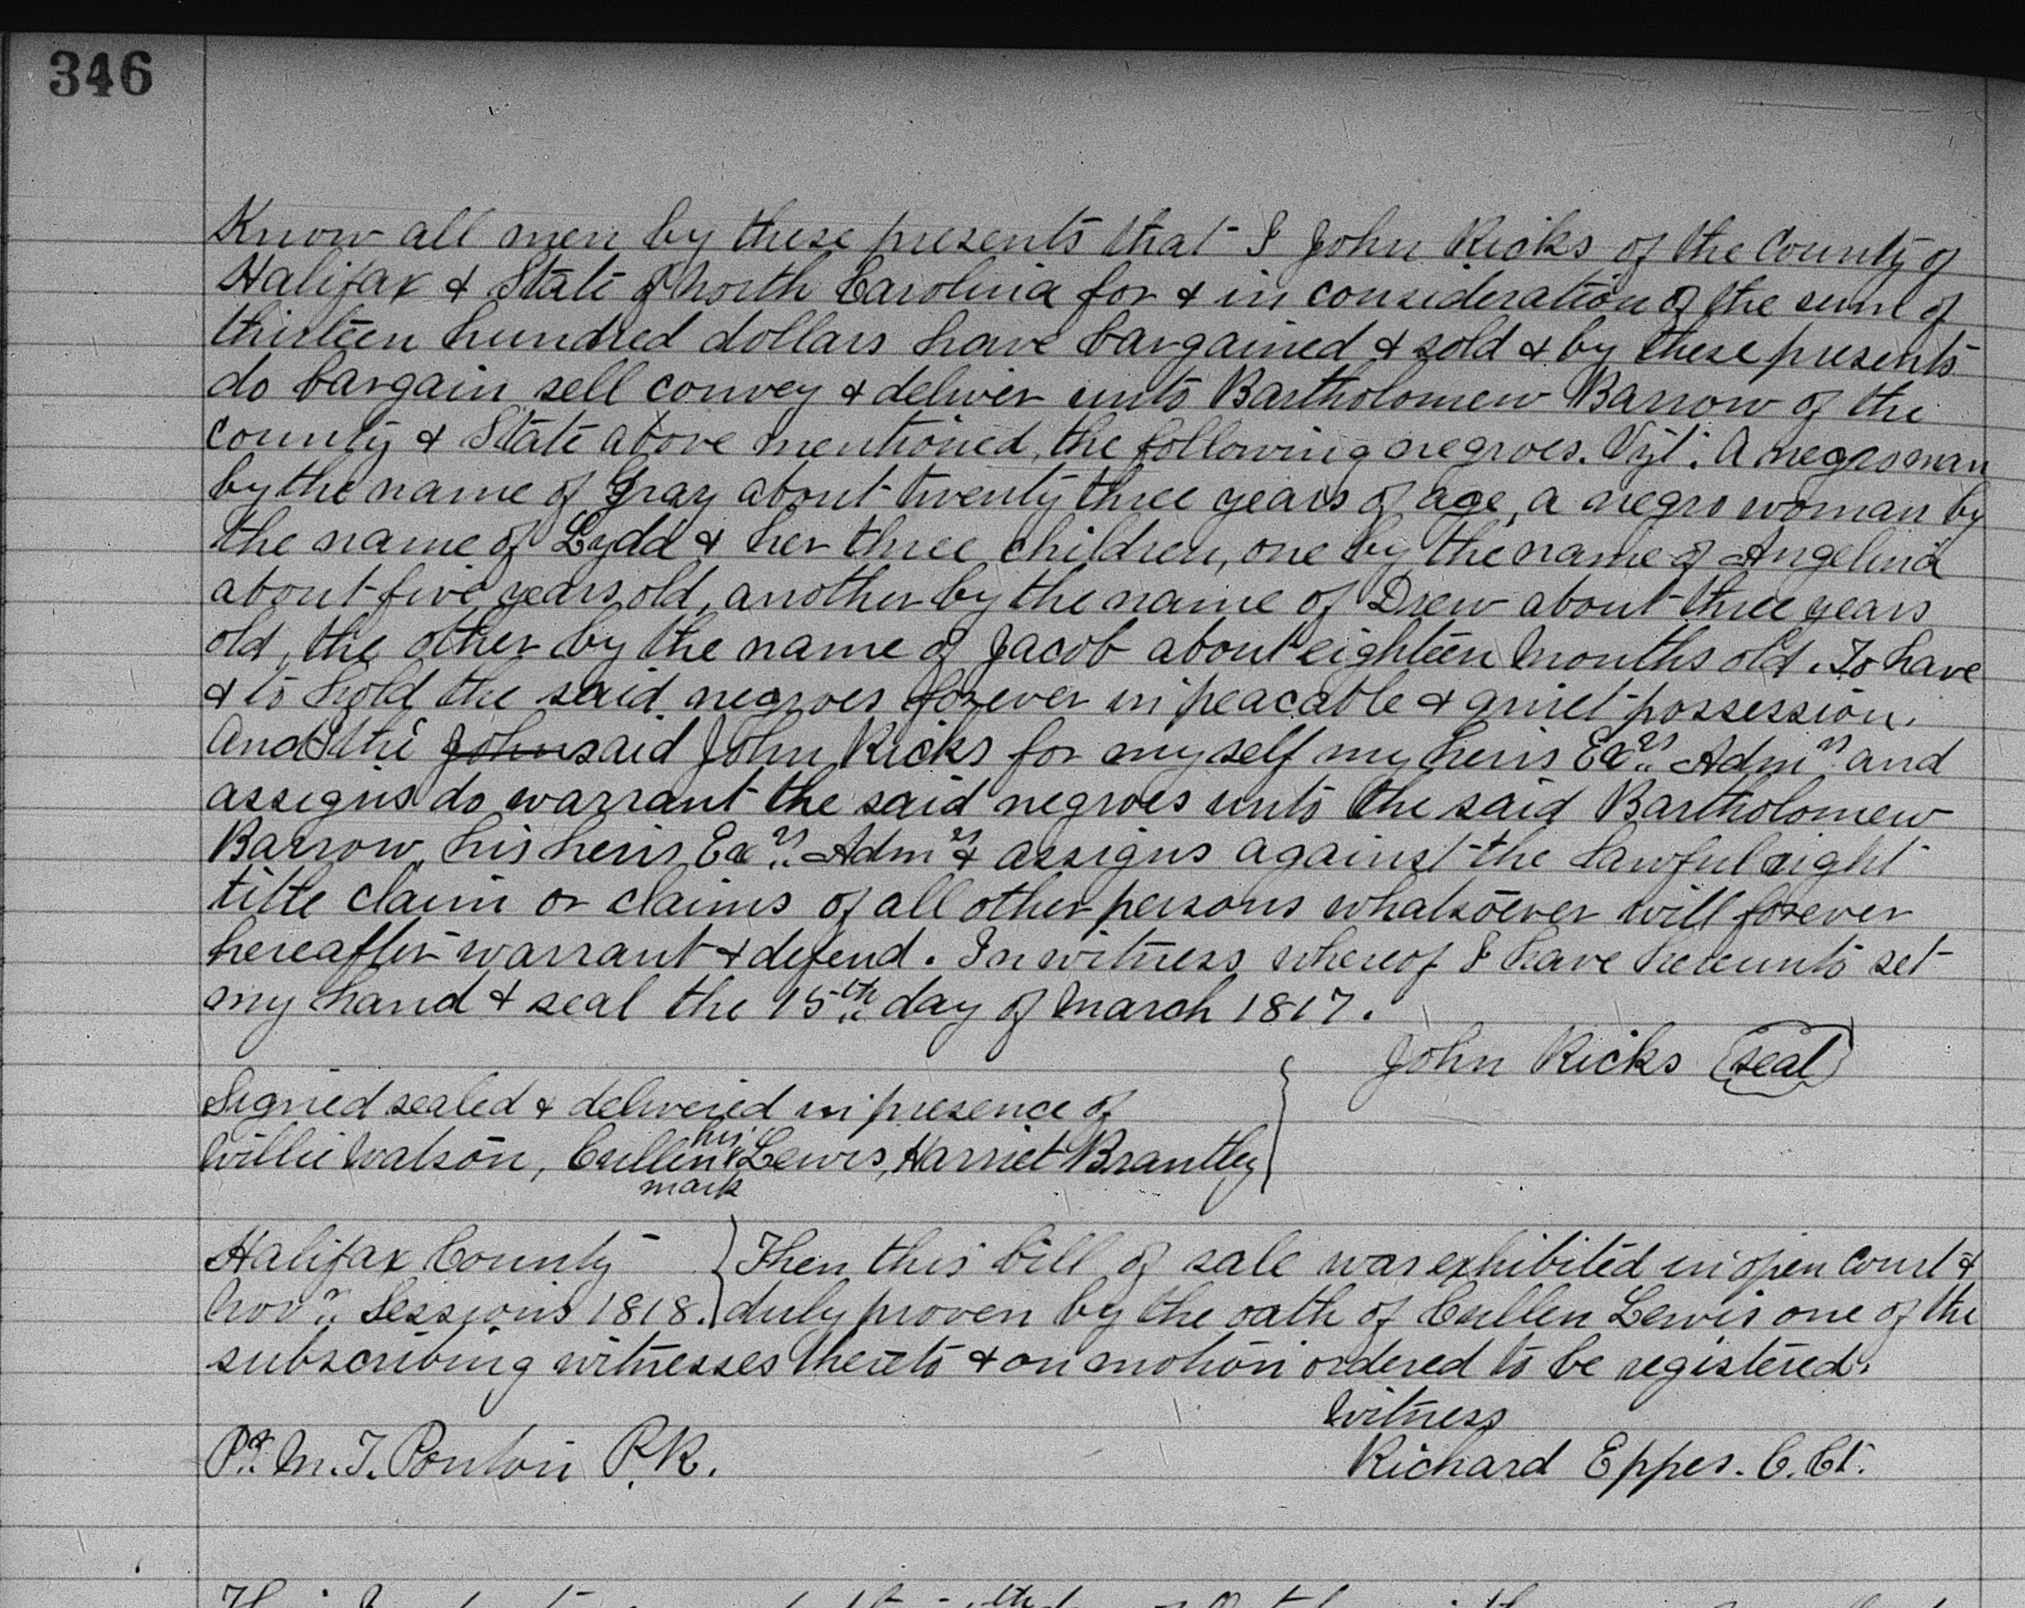 346
Know all men by these presents that I John Ricks of the County of
Halifax & State of North Carolina for & in consideration of the sum of
thirteen hundred dollars have bargained & sold & by these presents
do bargain sell convey & deliver unto Bartholomew Barrow of the
County & State above mentioned, the following negroes. Vizt: A negro man
by the name of Gray about twenty three years of age, a negro woman by
the name of Lydd & her three children, one by the name of Angelina
about five years old, another by the name of Drew about three years
old, the other by the name of Jacob about eighteen months old. To have
& to hold the said negroes forever in peacable & quiet possession.
And I the John said John Ricks for myself my heirs Exrs. Admrs. and
assigns do warrant the said negroes unto the said Bartholomew
Barrow, his heirs, Exrs. Admrs & assigns against the lawful right
title claim or claims of all other persons whatsoever will forever
hereafter warrant & defend. In witness whereof I have hereunto set
my hand & seal the 15th day of March 1817.
John Ricks (seal)
Signed sealed & delivered in presence of
Willie Watson, Cullen his x mark Lewis, Harriet Brantley
Halifax County } Then this bill of sale was exhibited in open court &
Novr. Sessions 1818. } duly proven by the oath of Cullen Lewis one of the
subscribing witnesses thereto & on motion ordered to be registered.
Witness
Pr. M. T. Ponton P.R. Richard Eppes. C. Ct.